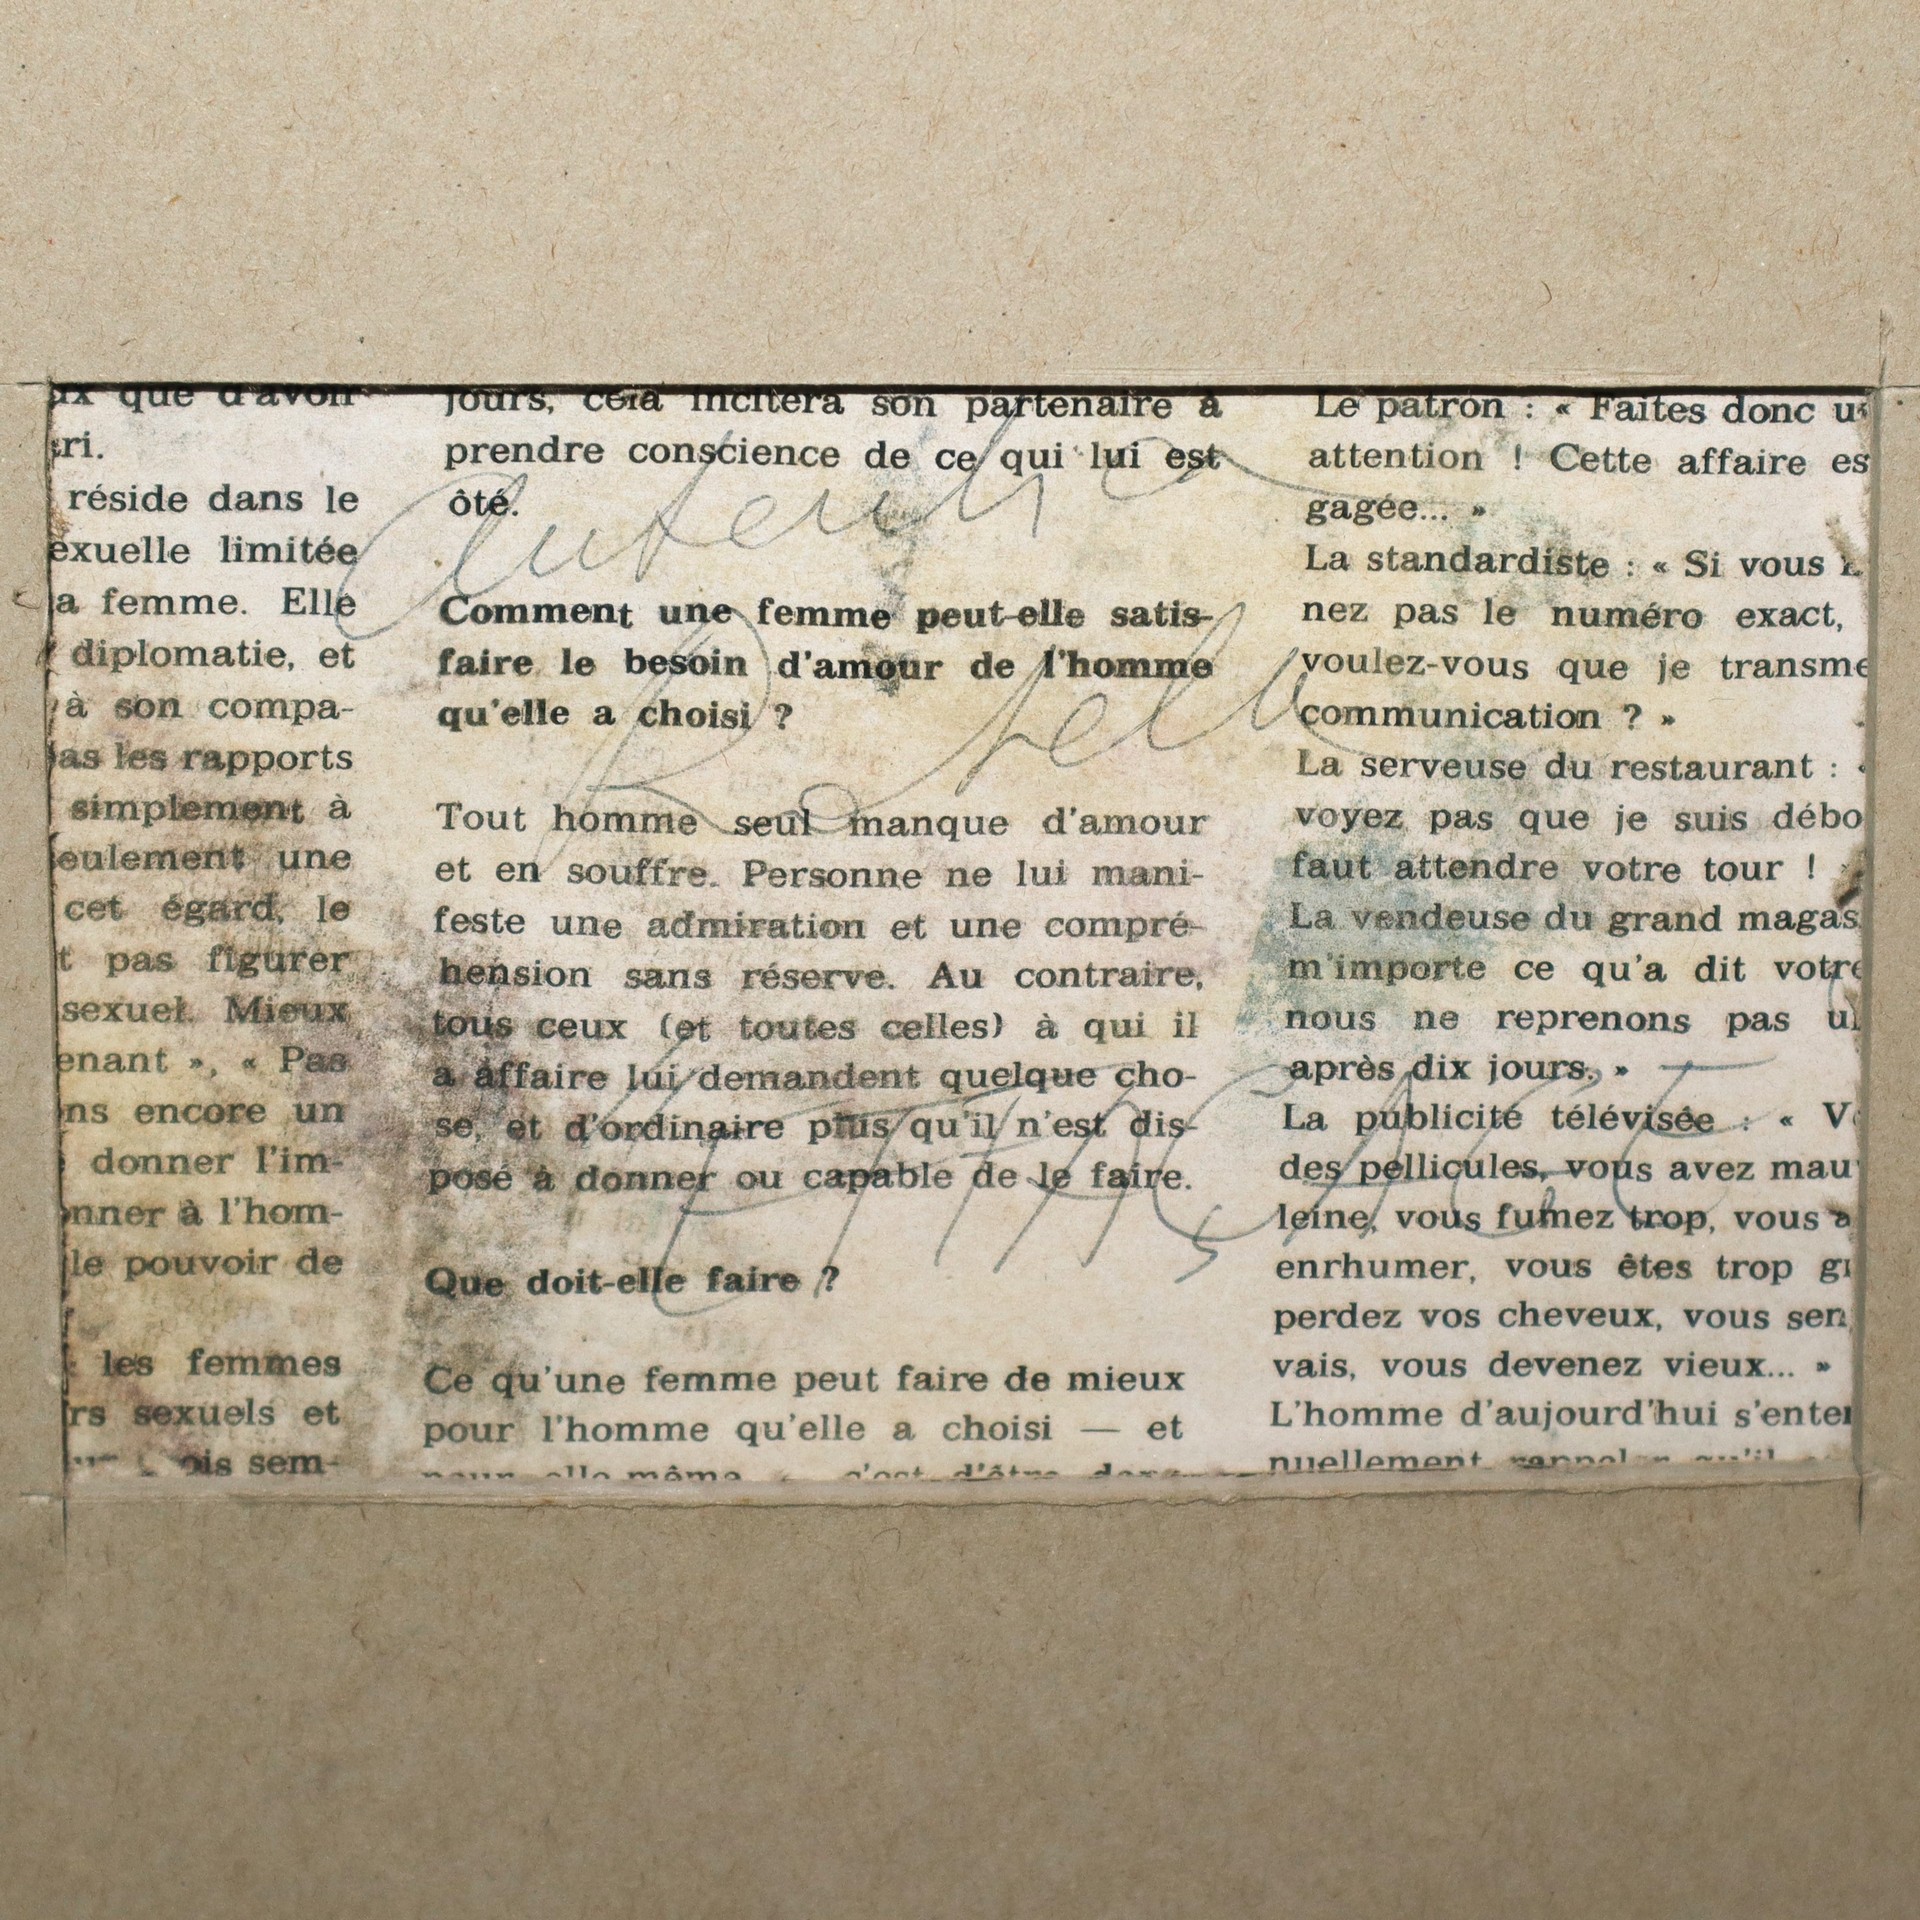 que d'avoir
réside dans le
limitée
femme. Elle
diplomatie, et
à son compa-
les rapports
simplement à
une
cet égard, le
pas figurer
sexuel. Mieux
», « Pas
encore un
donner l'im-
à l'hom-
le pouvoir de
les femmes
sexuels et
sem-
jours, cela incitera son partenaire à
prendre conscience de ce qui lui est
ôté.
Comment une femme peut-elle satis-
faire le besoin d'amour de l'homme
qu'elle a choisi ?
Tout homme seul manque d'amour
et en souffre. Personne ne lui mani-
feste une admiration et une compré-
hension sans réserve. Au contraire,
tous ceux (et toutes celles) à qui il
a affaire lui demandent quelque cho-
se, et d'ordinaire plus qu'il n'est dis-
posé à donner ou capable de le faire.
Que doit-elle faire ?
Ce qu'une femme peut faire de mieux
pour l'homme qu'elle a choisi — et
Le patron : « Faites donc
attention ! Cette affaire
gagée... »
La standardiste : « Si vous
nez pas le numéro exact,
voulez-vous que je
communication ? »
La serveuse du restaurant :
voyez pas que je suis
faut attendre votre tour !
La vendeuse du grand
m'importe ce qu'a dit votre
nous ne reprenons pas
après dix jours. »
La publicité télévisée : «
des pellicules, vous avez
leine, vous fumez trop, vous
enrhumer, vous êtes trop
perdez vos cheveux, vous
vais, vous devenez vieux... »
L'homme d'aujourd'hui